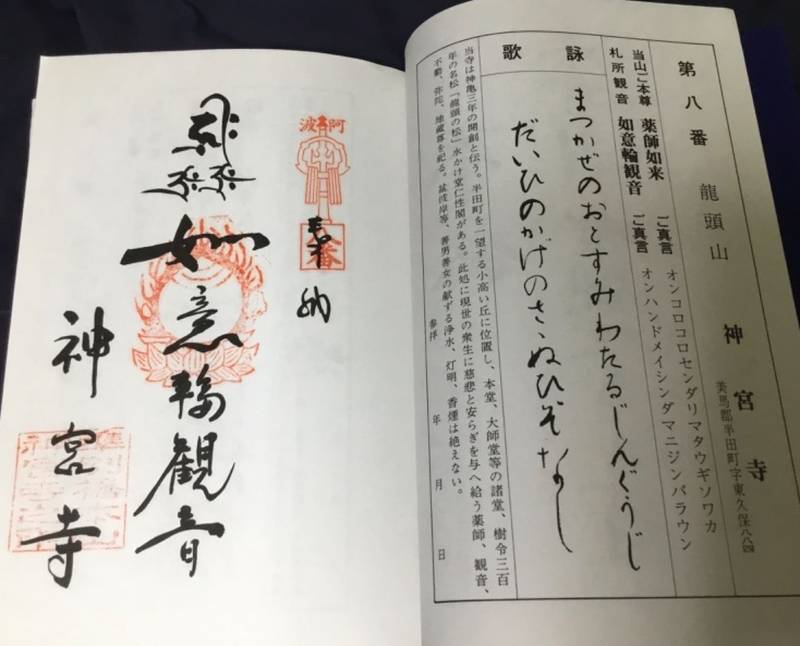 第八番 龍頭山 神宮寺
美馬郡半田町字東久保八四
当山ご本尊 薬師如来 ご真言 オンコロコロセンダリマタウギソワカ
札所観音 如意輪観音 ご真言 オンハンドメイシンダマニジンバラウン
詠歌
まつかぜのおとすみわたるじんぐうじ
だいひのかげのさゝぬひぞなし
当寺は神亀三年の開創と伝う。半田町を一望する小高い丘に位置し、本堂、大師堂等の諸堂、樹令三百
年の名松「龍頭の松」水かけ堂仁性閣がある。此処に現世の衆生に慈悲と安らぎを与へ給う薬師、観音、
不動、弥陀、地蔵尊を祀る。盆彼岸等、善男善女の献ずる浄水、灯明、香煙は絶えない。
参拝 年 月 日
阿波
八番
奉納
如意輪観音
神宮寺